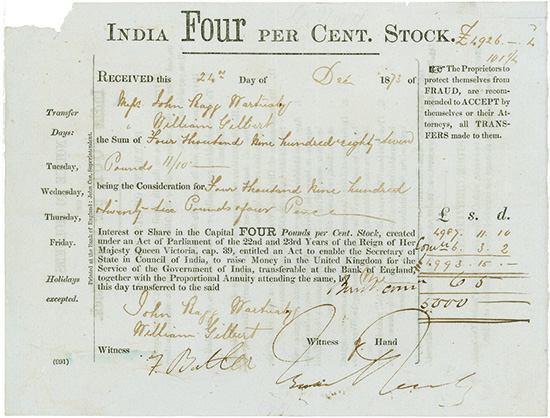 INDIA FOUR PER CENT. STOCK.
£4926.—.4
101¼
RECEIVED this 24th Day of Dec 1873 of
Messrs John Ragg
William Gilbert
the Sum of Four thousand Nine hundred eighty seven
Pounds 11/10 —
being the Consideration for Four thousand Nine hundred
twenty six Pounds & four Pence
Interest or Share in the Capital FOUR Pounds per Cent. Stock, created
under an Act of Parliament of the 22nd and 23rd Years of the Reign of Her
Majesty Queen Victoria, cap. 39, entitled an Act to enable the Secretary of
State in Council of India, to raise Money in the United Kingdom for the
Service of the Government of India, transferable at the Bank of England,
together with the Proportional Annuity attending the same, by
this day transferred to the said
John Ragg
William Gilbert
Witness Witness my Hand
Transfer
Days:
Tuesday,
Wednesday,
Thursday,
Friday.
Holidays
excepted.
(991)
Printed at the Bank of England: John Coe, Superintendent.
The Proprietors to
protect themselves from
FRAUD, are recom-
mended to ACCEPT by
themselves or their At-
torneys, all TRANS-
FERS made to them.
£ s. d.
4987. 11. 10
6. 3. 2
4993. 15. —
6 5
5000 —